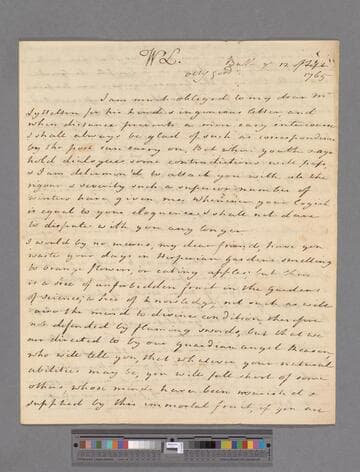 W L.
Bath y 12 of Sept.
very good
1765
I am much obliged to my dear Mr
Lyttelton for his kind & ingenious letter and
when distance prevents a nearer intercourse
I shall always be glad of such as correspondence
by the post can carry on. But when youth & age
hold dialogues some contradictions will pass,
& I am determin'd to attack you with all the
rigour & severity such a superior number of
winters have given me; whenever your Logick
is equal to your eloquence I shall not dare
to dispute with you any longer
I would by no means, my dear friend, have you
waste your days in Hesperian Gardens smelling
to orange flowers, or eating apples; but there
is a tree of unforbidden fruit in the Gardens
of Science, a tree of knowledge not such as will
raise the mind to divine condition, therefore
not defended by flaming swords, but that we
are directed to by our guardian angel Reason,
who will tell you, that whatever your natural
abilities may be, you will fall short of some
others whose minds have been nourished &
supplied by this immortal fruit, if you are